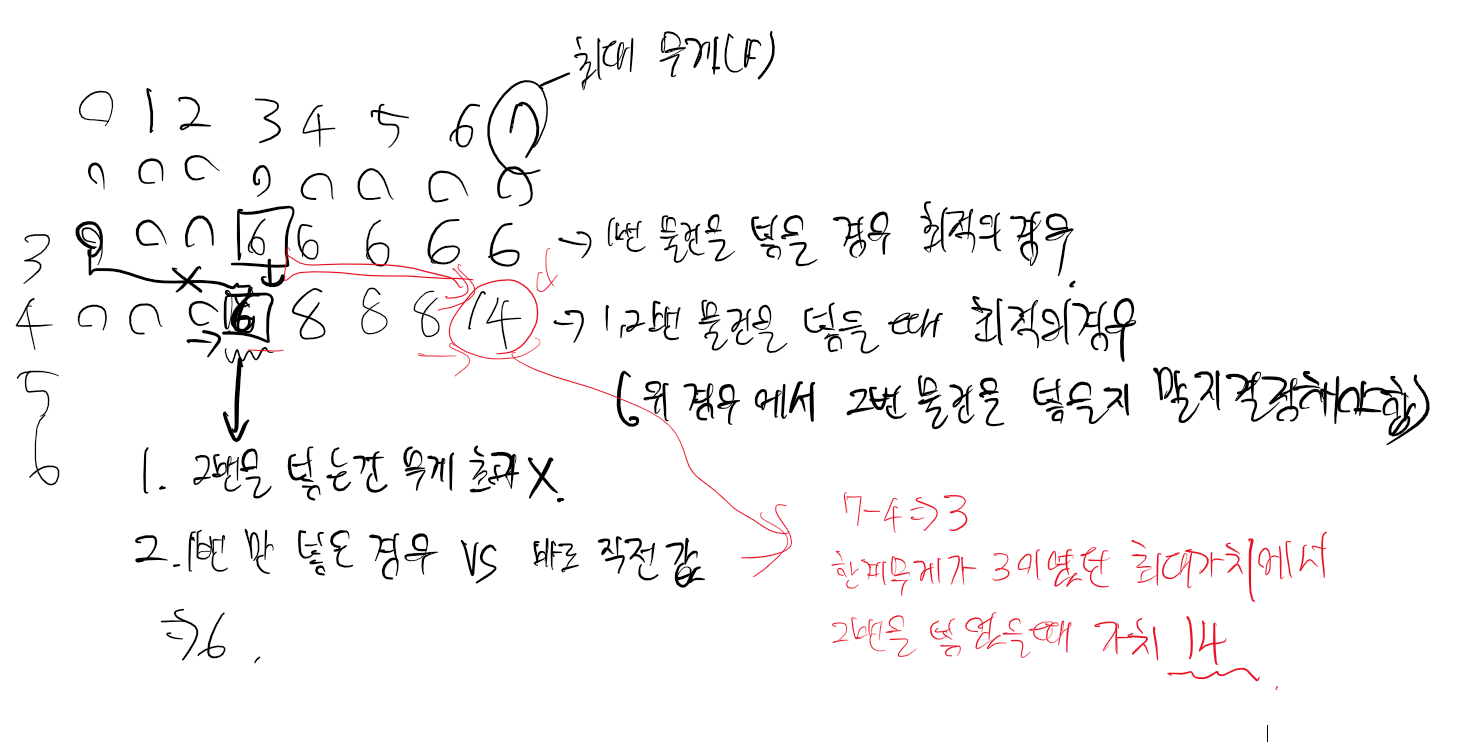 최대 무게(F)
0 1 2 3 4 5 6 7
0 0 0 0 0 0 0 0
3 0 0 0 6 6 6 6 6 → 1번 물건을 넣을 경우 최적의 경우.
4 0 0 0 6 8 8 8 14 → 1,2번 물건을 넣을 때 최적의 경우
5 (위 경우에서 2번 물건을 넣을지 말지 결정해야함)
6
1. 2번을 넣는건 무게 초과 X.
2. 1번 만 넣은 경우 VS 바로 직전 값
⇒ 6.
7-4 ⇒ 3
한계무게가 3이였던 최대가치에서
2번을 넣었을때 가치 14